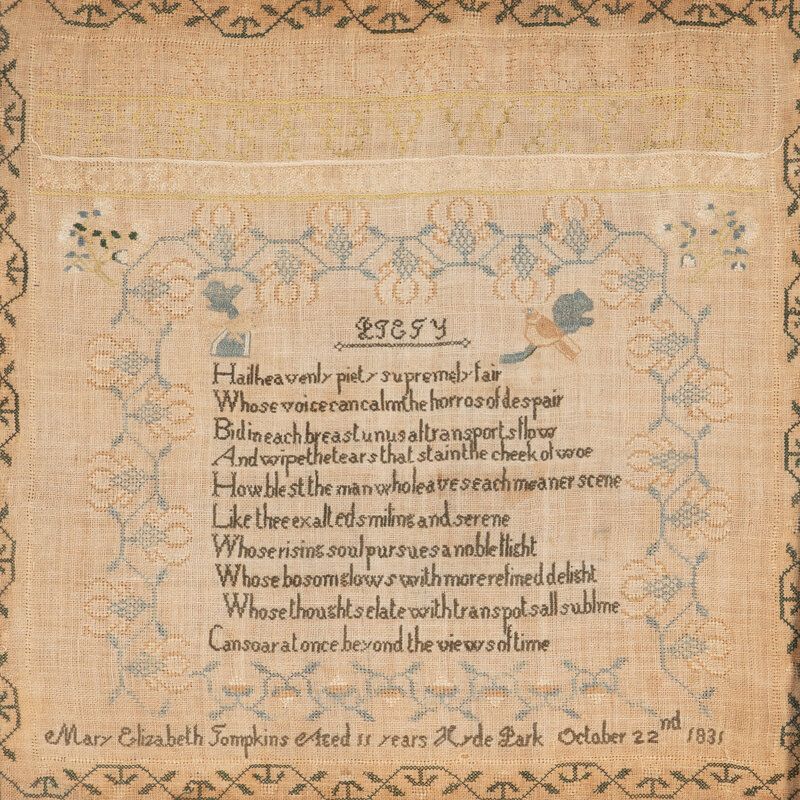 O P Q R S T U V W X Y Z
PIETY
Hail heavenly piety supremely fair
Whose voice can calm the horros of despair
Bid in each breast unusal transports flow
And wipe the tears that stain the cheek of woe
How blest the man who leaves each meaner scene
Like thee exalted smiling and serene
Whose rising soul pursues a noble flight
Whose bosom glows with more refined delight
Whose thoughts elate with transpots all sublme
Can soar at once beyond the views of time
Mary Elizabeth Tompkins Aged 11 years Hyde Park October 22nd 1831